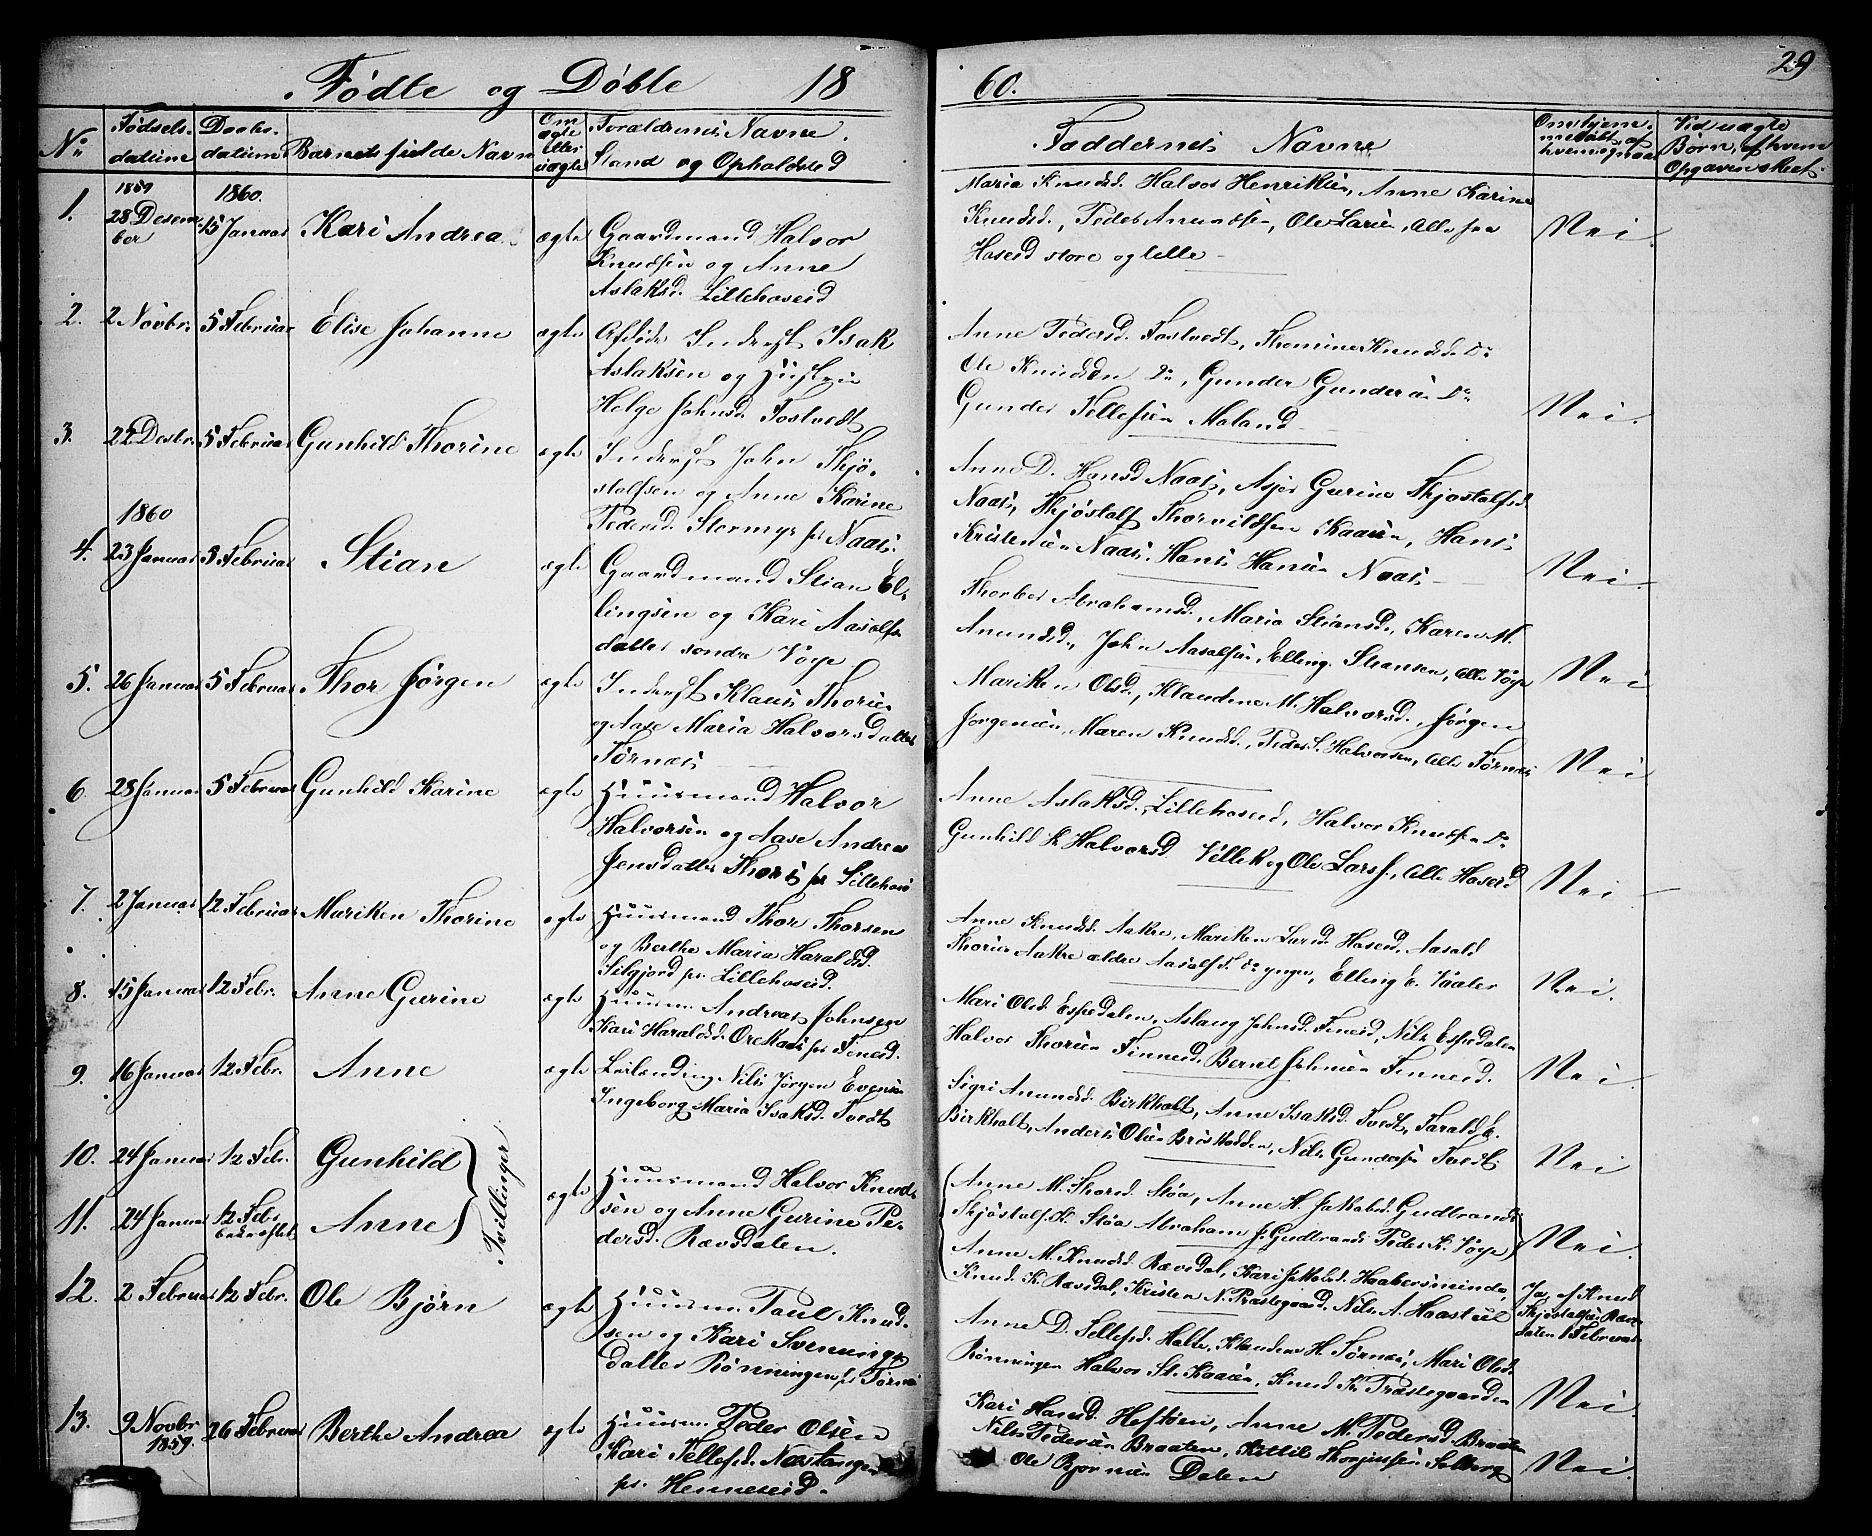 Födte og Döbte 18
60.
29
No
Födsels-
datum
Daabs-
datum
Barnets fulde Navn
Om
ægte
eller
uægte
Forældrenes Navne.
Stand og Opholdsted
Faddernes Navne
Om hjem-
medöbt, af
hvem og naar
Ved uægte
Börn, af hvem
Opgaven skeet.
1.
1859
28 Desem-
ber
1860.
15 Januar
Kari Andrea
ægte
Gaardmand Halvor
Knudsen og Anne
Aslaksd. Lillehoseid
Maria Knudsd. Halvor Henriksen, Anne Karine
Knudsd., Peder Amundsen, Ole Larsen, alle fra
Hoseid store og lille
Nei.
2.
2 Novbr.
5 Februar
Elise Johanne
ægte
Afdöde Inderst Isak
Aslaksen og Hustrue
Helge Johnsd. Tostvedt
Anne Pedersd. Tostvedt, Thomine Knudsd. Do
Ole Knudsen Do, Gunder Gundersen Do
Gunder Tellefsen Moland
Nei.
3.
22 Desbr.
5 Februar
Gunhild Thorine
ægte
Inderst John Thjö-
stolfsen og Anne Karine
Pedersd. Stormyr pr Naas.
Anne D. Hansd Naas, Asjer Gurine Thjostolfsd.
Naas, Thjöstolf Thorvildsen Kaasen, Hans
Kristensen Naas, Hans Hansen Naas
Nei.
4.
1860
23 Januar
3 Februar
Stian
ægte
Gaardmand Stian El-
lingsen og Kari Aasolfs-
datter sondre Vöje
Thorber Abrahamsd., Maria Stiansd., Karen M.
Anundsd., John Aasolfsen, Elling Stiansen, alle Vöje
Nei
5.
26 Januar
5 Februar
Thor Jörgen
ægte
Inderst Klaus Thorsen
og Aase Maria Halvorsdatter
Törnæs
Mariken Olsd., Klaudine M. Halvorsd., Jörgen
Jorgensen, Maren Knudsd., Peder S. Halvorsen, alle Törnæs
Nei
6
28 Januar
5 Februar
Gunhild Karine
ægte
Huusmand Halvor
Halvorsen og Aase Andrea
Jensdatter pr Lillehosei
Anne Aslaksd. Lillehoseid, Halvor Knudsen Do
Gunhild K Halvorsd. og Ole Larss., alle Hoseid
Nei
7.
2 Januar
12 Februar
Mariken Thorine
ægte
Huusmand Thor Thorsen
og Berthe Maria Haraldsd.
Silgjord pr. Lillehoseid.
Anne Knudsd. Aakre, Mariken Larsd. Hoseid, Aasold
Thorsen Aakre ældre Aasolf S. Do yngre, Elling E. Vaaler
Nei.
8.
15 Januar
12 Febr.
Anne Gurine
ægte
Huusm. Andreas Johnsen
Kari Haraldsd. pr Fineid.
Mari Olsd. Espedalen, Aslaug Johnsd. Fineid, Nils Espedalen
Halvor Thorsen Finneid. Bernt Johnsen Finneid.
Nei.
9.
16 Januar
12 Febr.
Anne
ægte
Leilænding Nils Jörgen Evensen
Ingeborg Maria Isaksd. Tvedt
Sigri Anundsd. Birkholt, Anne Isaksd. Tvedt, Tarald E.
Birkholt, Anders Olsen, Nils Gundersen Tvedt
Nei
10.
24 Januar
12 Febr.
Gunhild
Tvillinger
ægte
Huusmand Halvor Knud-
sen og Anne Gurine Pe-
dersd. Rævsdalen.
Anne M. Thorsd. Stöa, Anne H. Jakobsd. Gudbrands
Thjöstolf K. Stöa Abraham J. Gudbrands Peder K. Vöje
Nei.
11.
24 Januar
12 Febr.
bekræftet
Anne
Anne M. Knudsd. Rævsdal, Kari Jakobsd. Haabersminde,
Knud K. Rævsdal, Kristen N. Præstegaard. Nils A. Haastul
Ja, af Knud
Thjöstolfsen Ræv-
dalen 1 Februar
12.
2 Februar
12 Febr.
Ole Björn
ægte
Huusm. Paul Knud-
sen og Kari Svenungs-
datter Rönningen pr Törnæs
Anne D. Tellefsd. Holte, Klaudine H. Törnæs, Mari Olsd.
Rönningen Halvor St. Kaasen, Knud K. Præstegaarden
Nei.
13.
9 Novbr
1859.
26 Februar
Berthe Andrea
ægte
Huusm. Peder Olsen
Kari Tellefsd. Næstangen
pr. Henneseid.
Kari Hansd. Heftien, Anne M. Pedersd. Braaten
Nils Pedersen Braaten, Kittil Thorjussen Solberg
Ole Bjornsen Dalen
Nei.